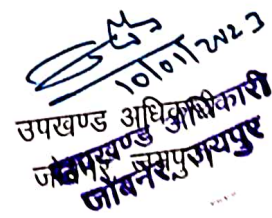 10/01/2023
उपखण्ड अधिकारी
जोबनेर, जयपुर
उपखण्ड अधिकारी
जोबनेर, जयपुर